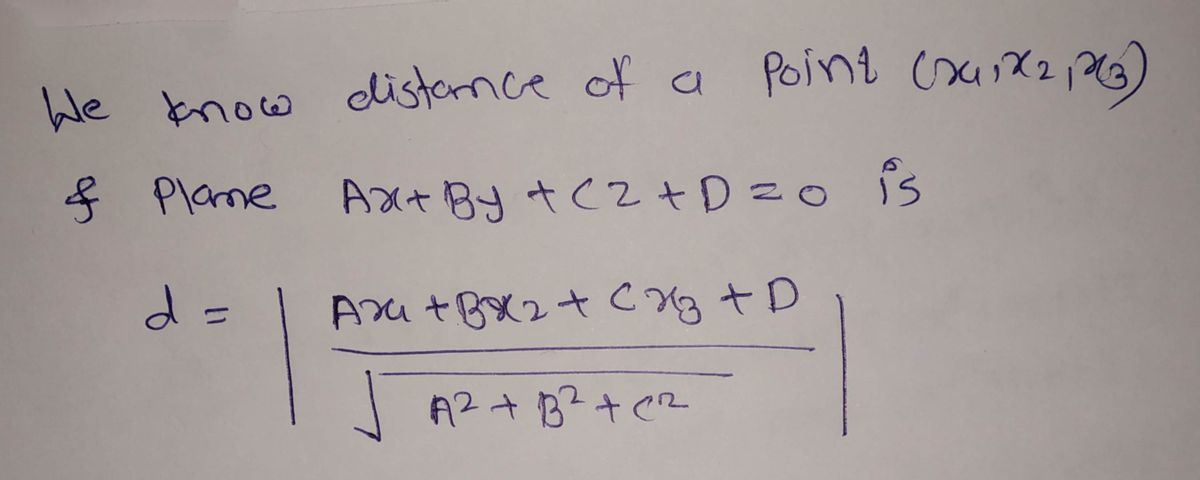 We know distance of a point (x1,x2,x3)
& Plane Ax+By+Cz+D=0 is
d = | Ax1+Bx2+Cx3+D |
√A²+B²+C²